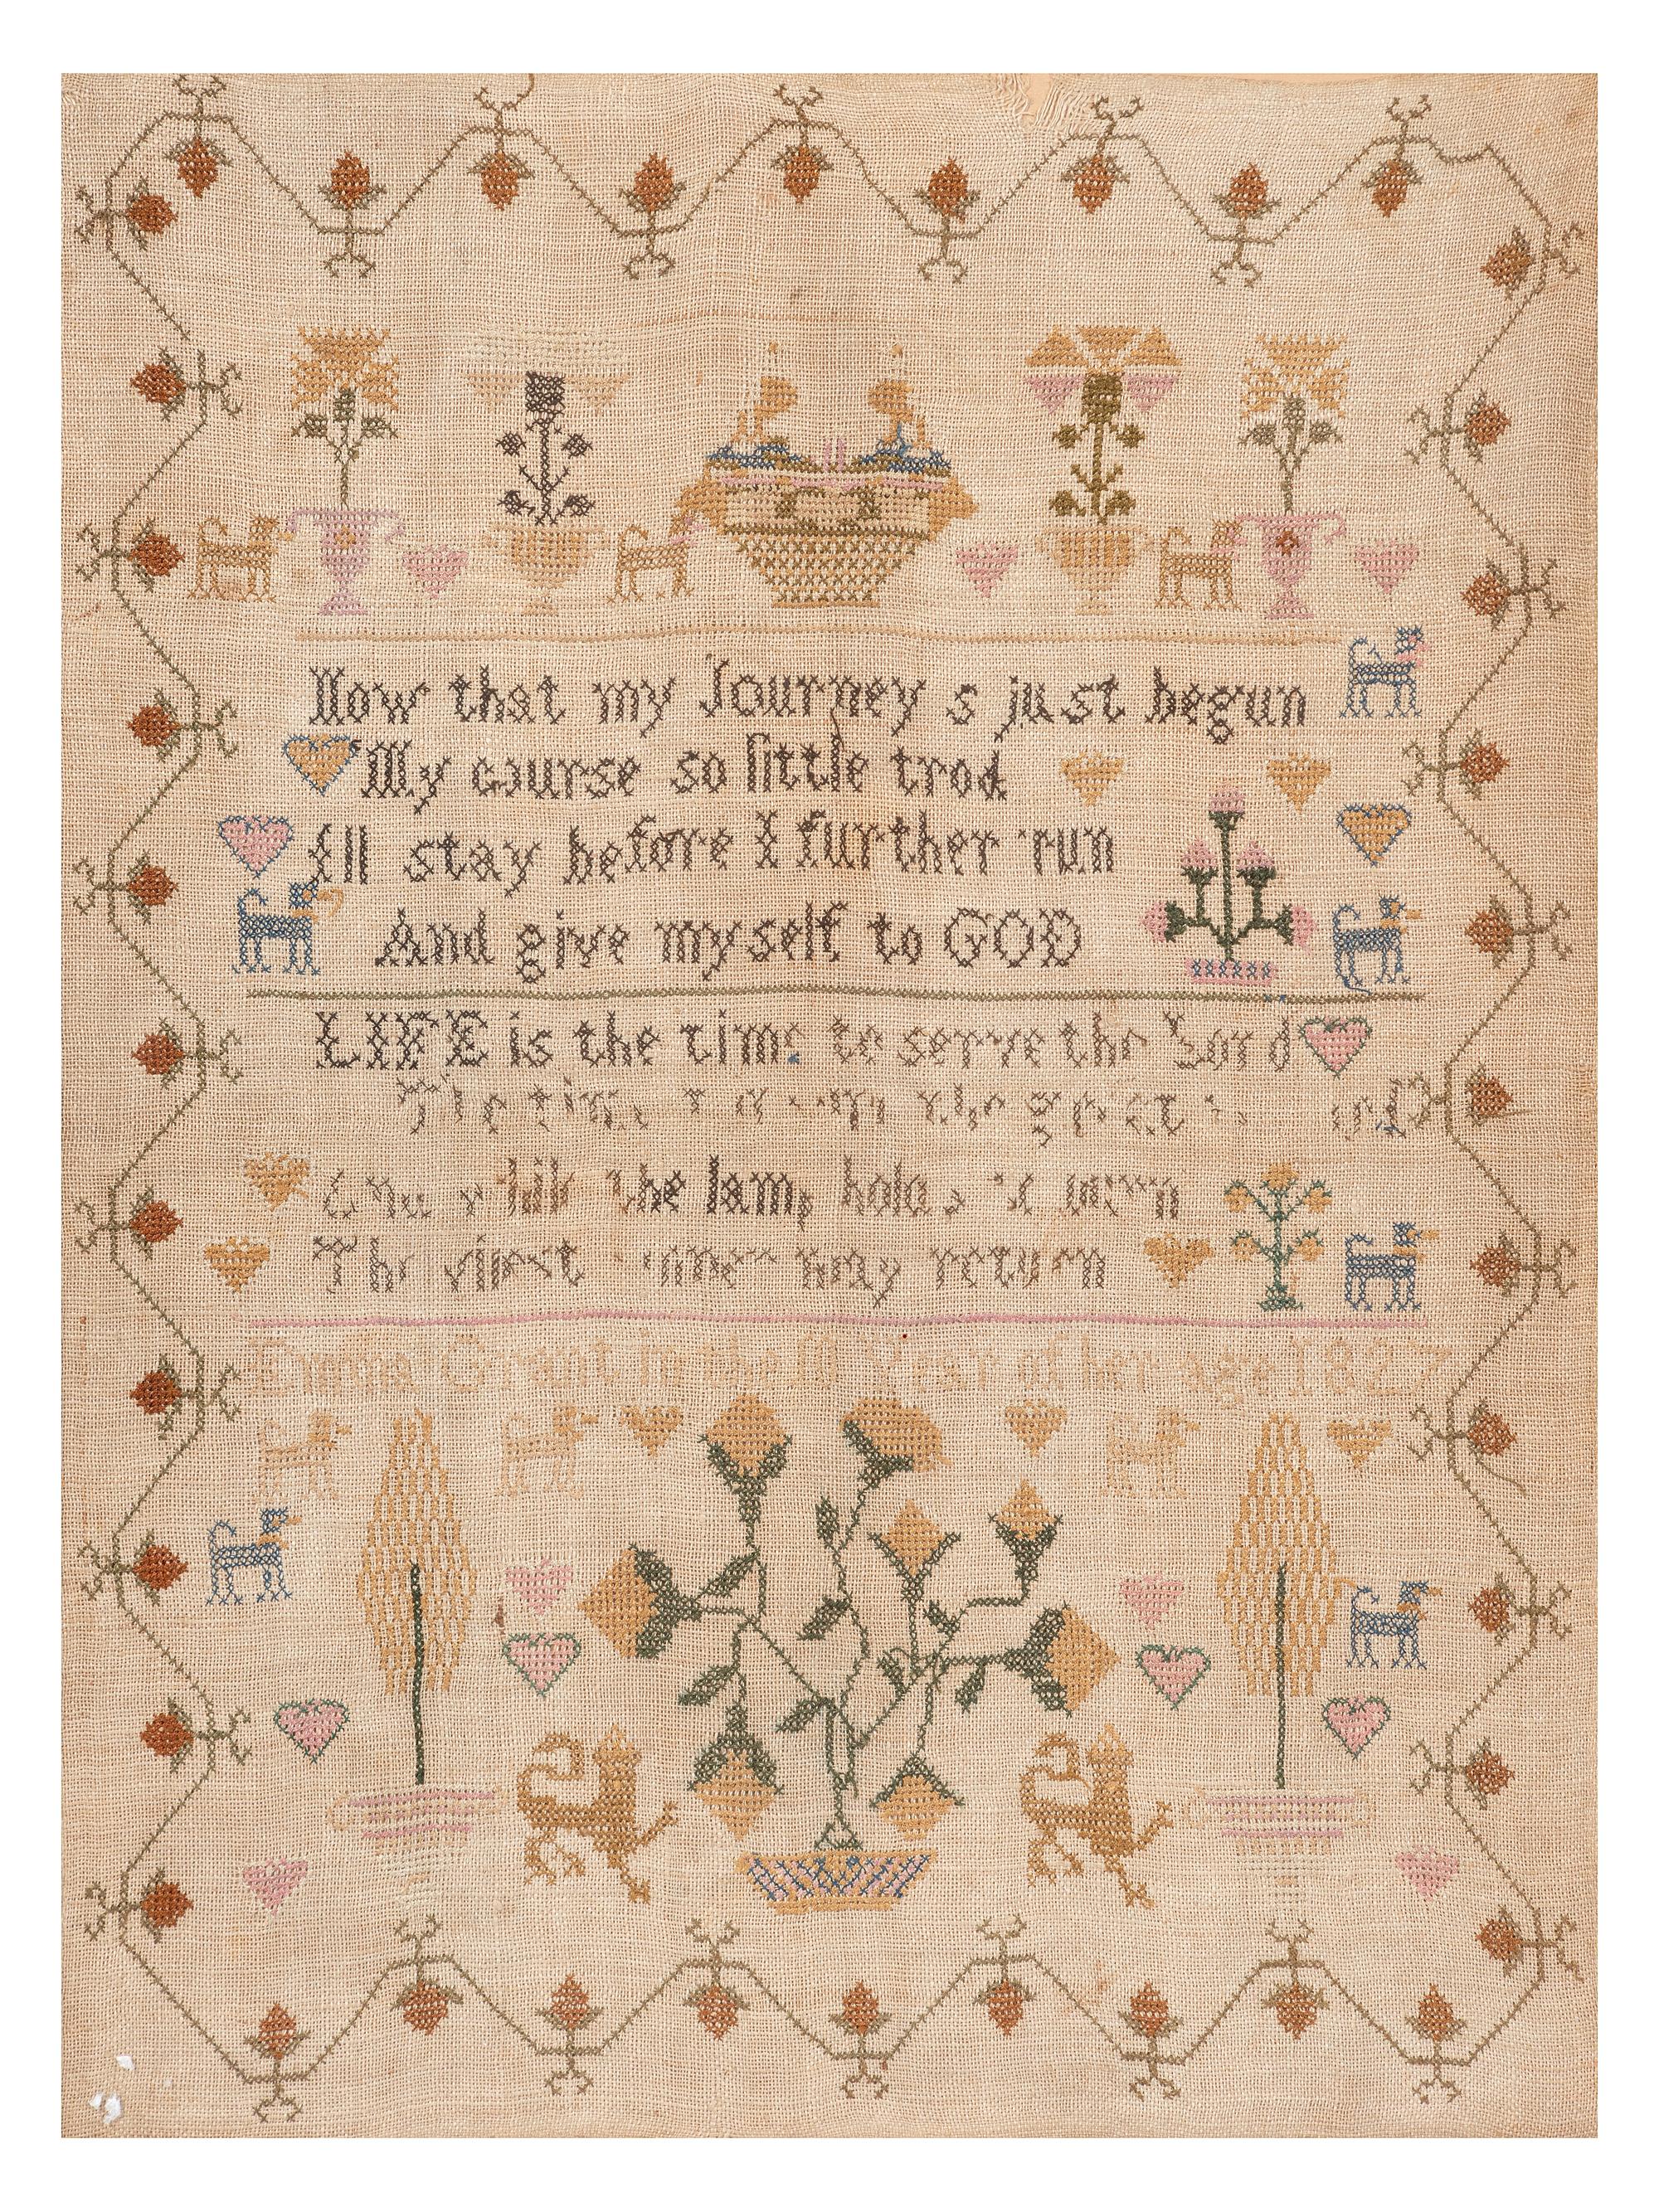 Now that my Journey s just begun
My course so little trod
Ill stay before I further run
And give myself to GOD
LIFE is the time to serve the Lord
The time the great
while the lamp holds
The vilest may return
Emma Grant in the 11 Year of her age 1827